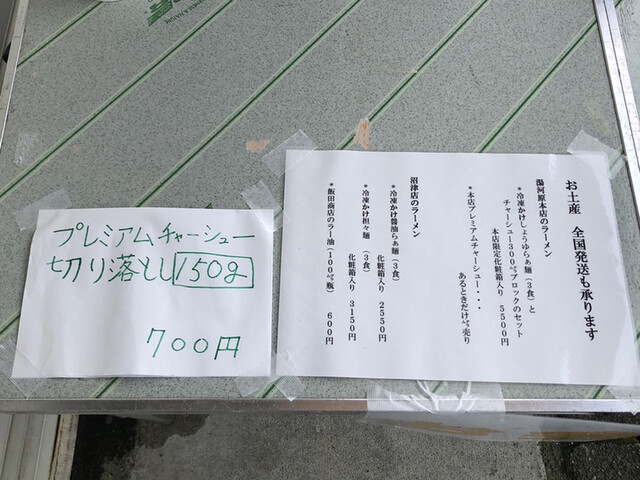 プレミアムチャーシュー
切り落とし 150g
700円
お土産 全国発送も承ります
湯河原本店のラーメン
*冷凍かけしょうゆらぁ麺(3食)と
チャーシュー300㌘ブロックのセット
本店限定化粧箱入り 5500円
*本店プレミアムチャーシュー・・・
あるときだけ㌘売り
沼津店のラーメン
*冷凍かけ醬油らぁ麺(3食)
化粧箱入り 2550円
*冷凍かけ担々麺(3食)
化粧箱入り 3150円
*飯田商店のラー油(100㌘瓶) 600円